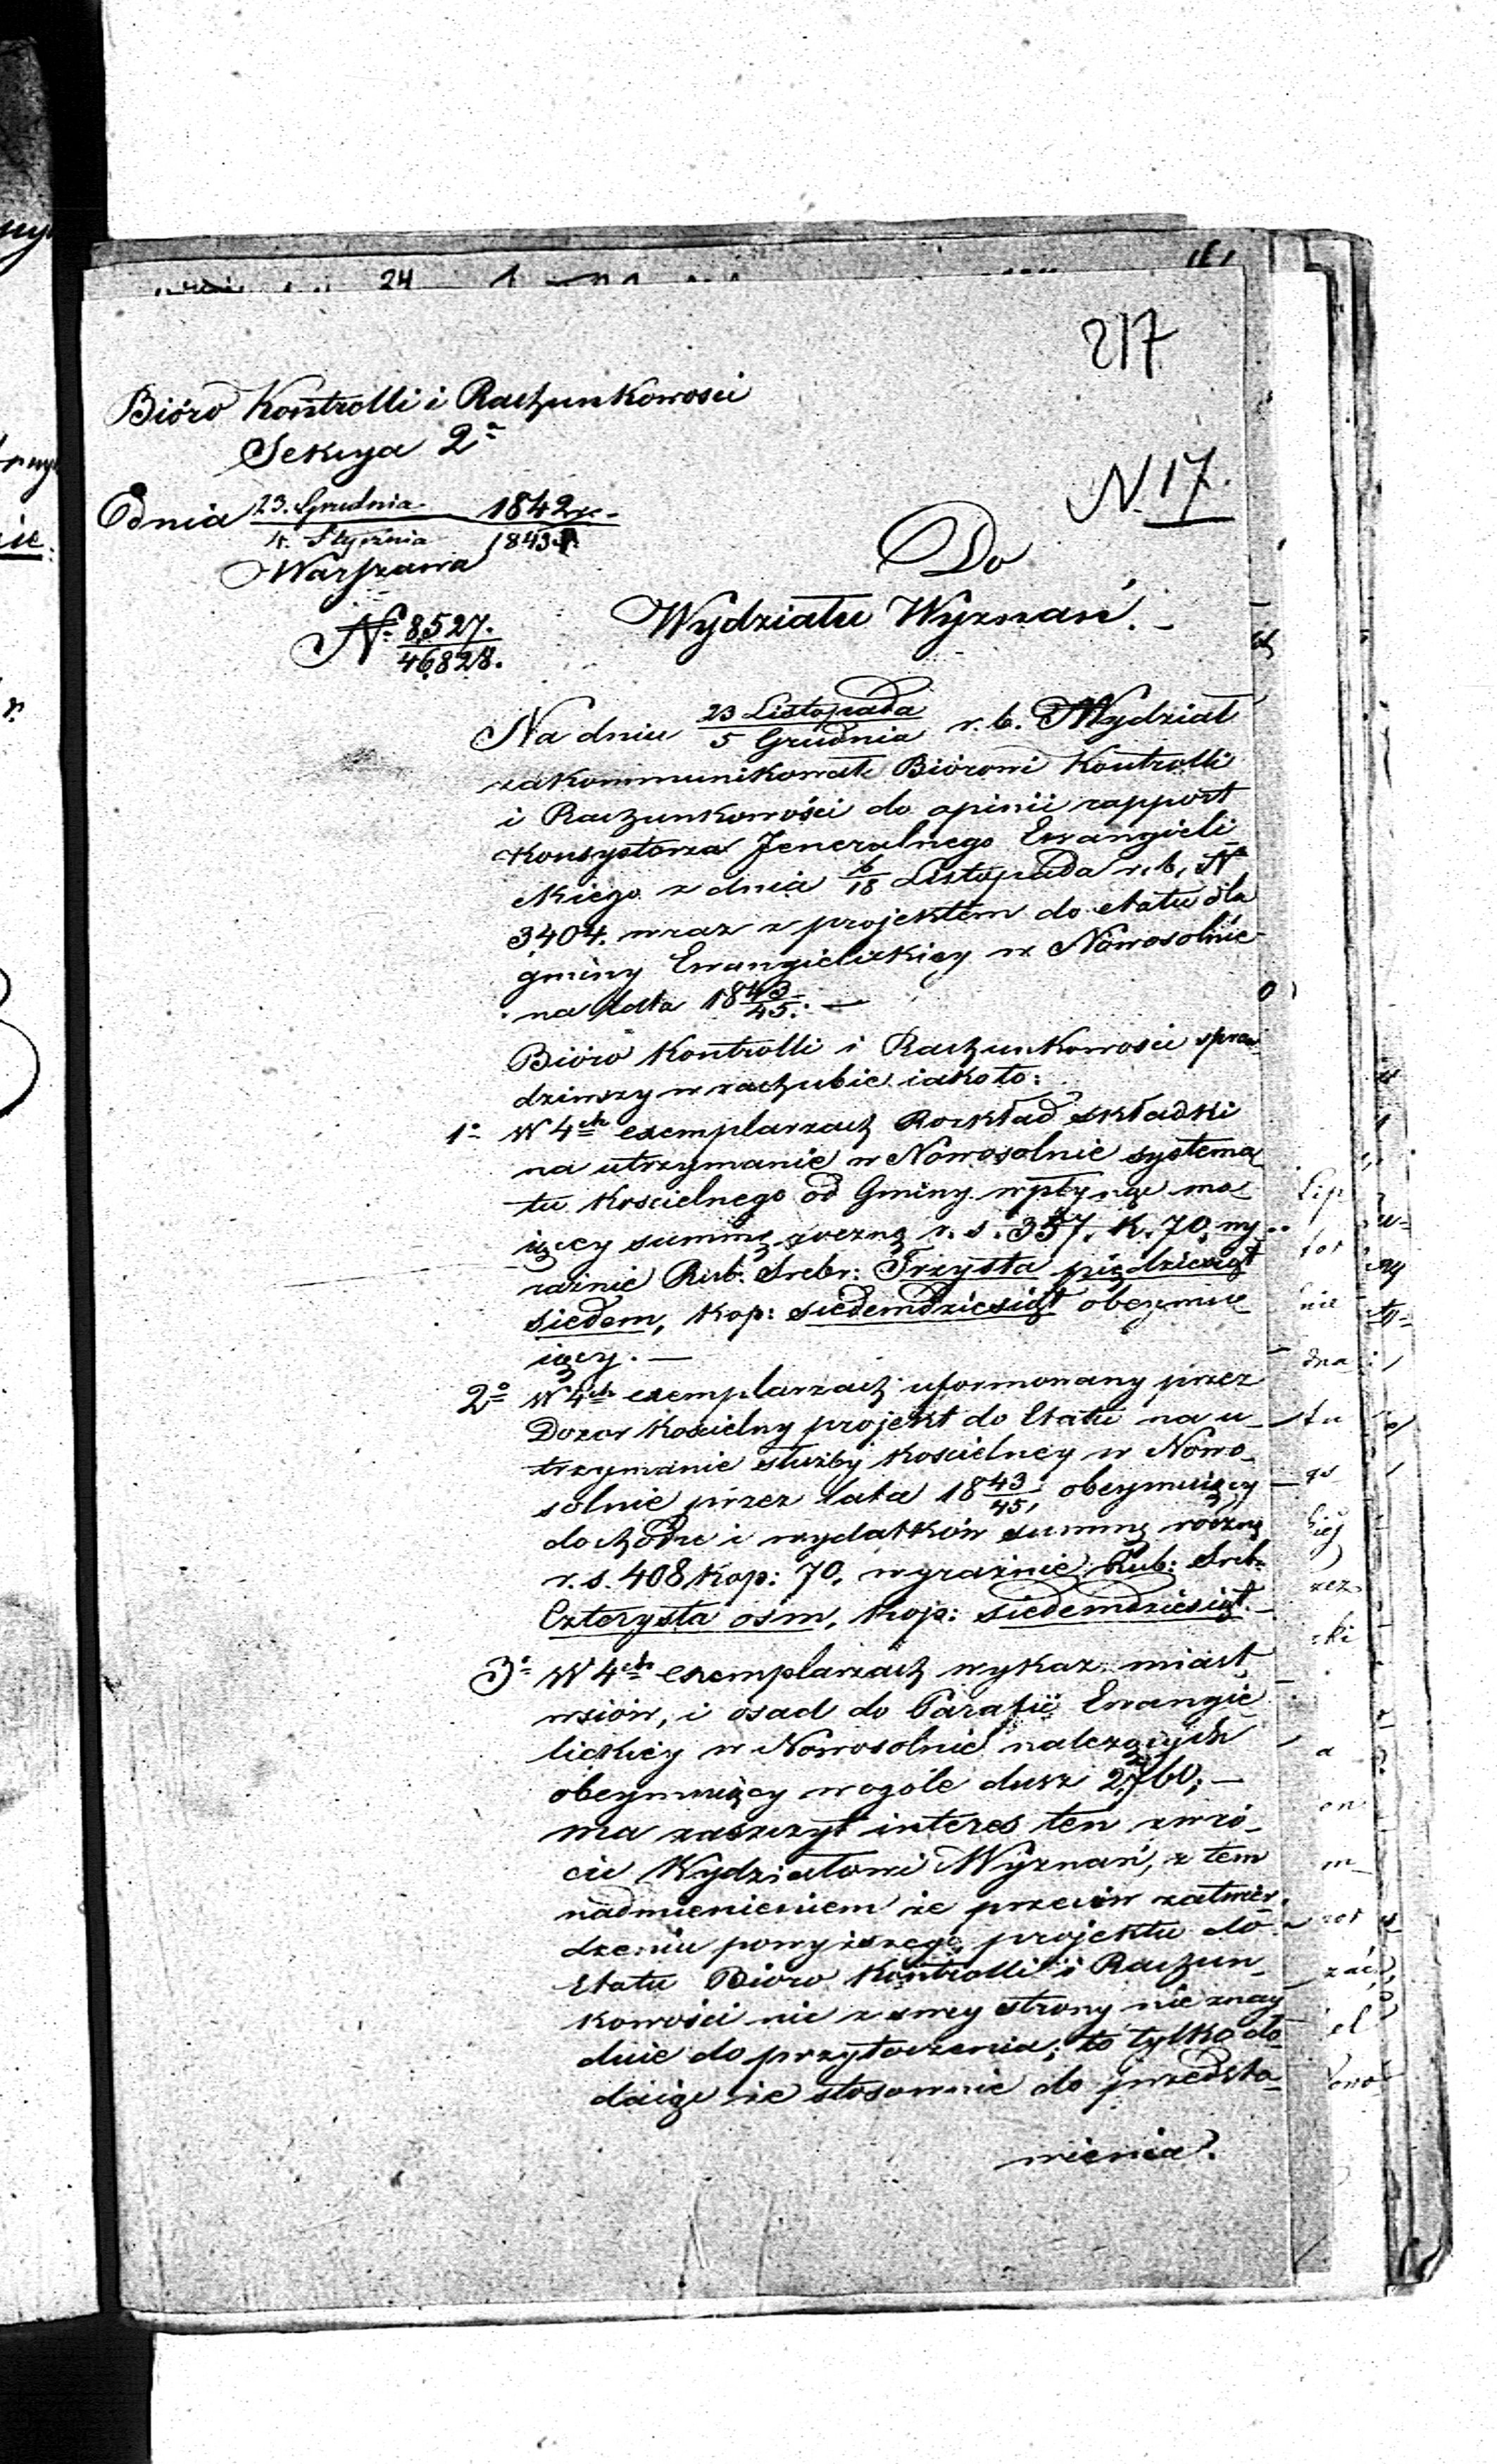 217
Bióro Kontrolli i Rachunkowosci
Sekcya 2ª
N. 17.
dnia 23. Grudnia 1842 r.
4. Stycznia 1843 r.
Warszawa
Do
Wydziału Wyznań. -
Nº 8,527.
46,828.
Na dniu 23 Listopada / 5 Grudnia r. b. Wydział
zakommunikował Biórowi Kontrolli
i Rachunkowości do opinii rapport
Konsystorza Jeneralnego Ewangieli
ckiego z dnia 6/18 Listopada r. b. N
3404. wraz z projektem do etatu dla
gminy Ewangielickiey w Nowosolnie
na lata 1843/45. —
Bióro Kontrolli i Rachunkowości spraw
dziwszy w rachubie iako to:
1º W 4ch exemplarzach Rozkład składki
na utrzymanie w Nowosolnie systema
tu Kościelnego od Gminy wpłynąć ma
iący summę roczną r. s. 357. K. 70, wy
raźnie Rub. Srebr: Trzysta pięćdziesiąt
siedem, Kop: siedemdziesiąt obeymu
iący. —
2º W 4ch exemplarzach uformowany przez
Dozór Kościelny projekt do Etatu na u-
trzymanie służby Kościelney w Nowo-
solnie przez lata 1843/45, obeymuiący
dochodu i wydatków summę roczną
r. s. 408 Kop: 70, wyraźnie Rub: Sreb:
Czterysta osm, Kop: siedemdziesiąt. -
3º W 4ch exemplarzach wykaz miast
wsiów, i osad do Parafii Ewangie
lickiey w Nowosolnie należących
obeymuiący wogóle dusz 2,760; —
ma zaszczyt interes ten zwró-
cić Wydziałowi Wyznań, z tem
nadmienieniem że przeciw zatwier
dzeniu powyższego projektu do
Etatu Bióro Kontrolli i Rachun-
kowości nic z swey strony nie znay
duie do przytoczenia; to tylko do
daiąc że stosownie do przedsta-
wienia